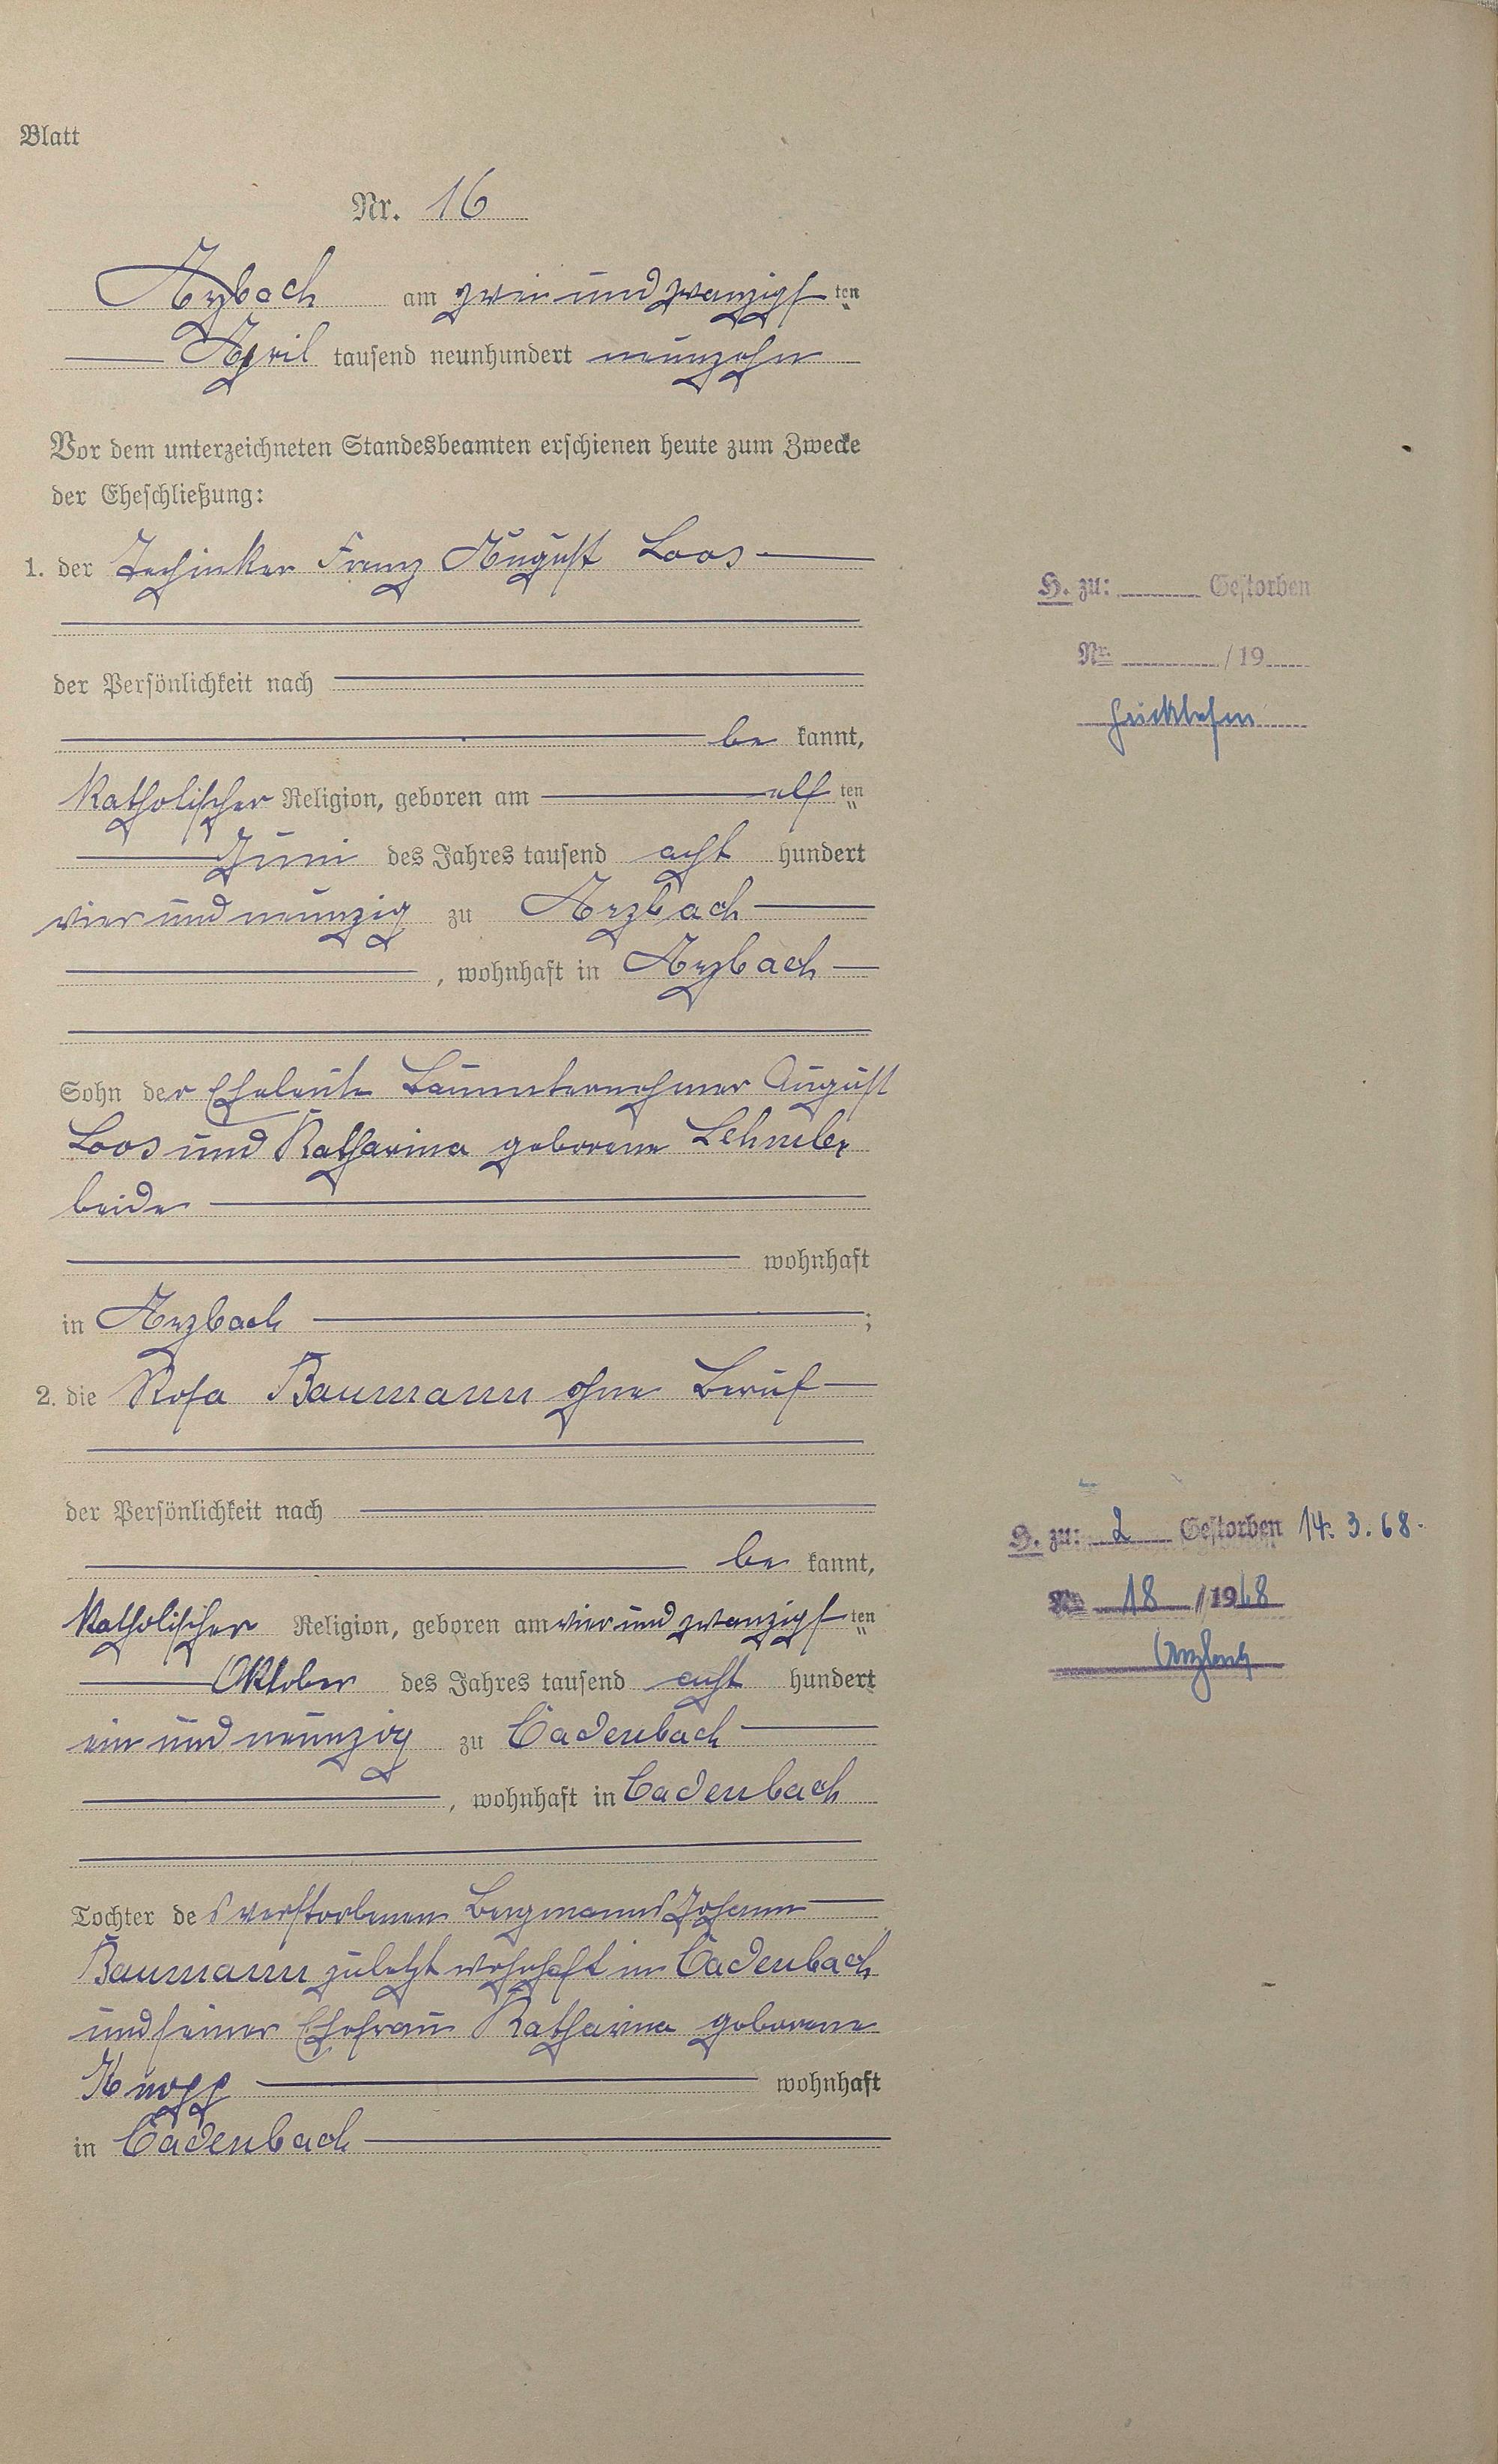 Blatt
Nr. 16
Arzbach am zwei und zwanzigsten
April tausend neunhundert neunzehn
Vor dem unterzeichneten Standesbeamten erschienen heute zum Zwecke
der Eheschließung:
1. der Techniker Franz August Loos
der Persönlichkeit nach
be kannt,
katholischer Religion, geboren am elf ten
Juni des Jahres tausend acht hundert
vier und neunzig zu Arzbach
, wohnhaft in Arzbach
Sohn der Eheleute Bauunternehmer August
Loos und Katharina geborene
beide
wohnhaft
in Arzbach ;
2. die Rosa Baumann ohne Beruf
der Persönlichkeit nach
be kannt,
katholischer Religion, geboren am vier und zwanzigsten
Oktober des Jahres tausend acht hundert
ein und neunzig zu Cadenbach
, wohnhaft in Cadenbach
Tochter des verstorbenen Bergmanns Johann
Baumann zuletzt wohnhaft in Cadenbach
und seiner Ehefrau Katharina geborene
Knopp wohnhaft
in Cadenbach
H. zu: Gestorben
Nr. /19
S. zu: 2 Gestorben 14. 3. 68.
Nr. 18 /1968
Arzbach